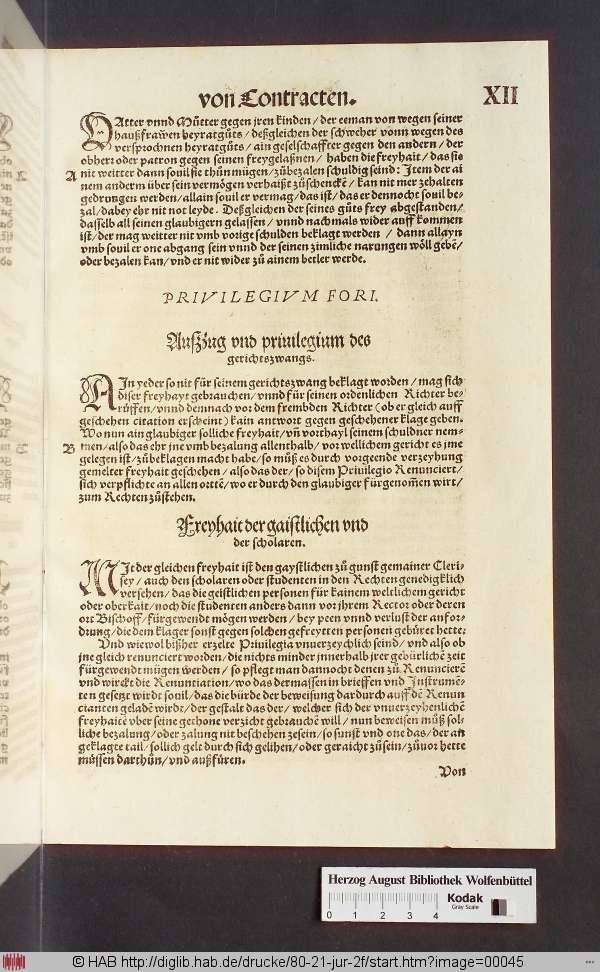 von Contracten.
XII
VAtter vnnd Mütter gegen jren kinden / der eeman von wegen seiner
haußfrawen heyratgůts / deßgleichen der schweher vonn wegen des
versprochnen heyratgůts / ain geselschaffter gegen den andern / der
obherr oder patron gegen seinen freygelaßnen / haben die freyhait / das sie
A
nit weitter dann souil sie thůn mügen / zůbezalen schuldig seind: Jtem der ai
nem anderm über sein vermögen verhaißt zůschencken / kan nit mer zehalten
gedrungen werden / allain souil er vermag / das ist / das er dennocht souil be-
zal / dabey ehr nit not leyde. Deßgleichen der seines gůts frey abgestanden /
dasselb all seinen glaubigern gelassen / vnnd nachmals wider auff kommen
ist / der mag weitter nit vmb vorige schulden beklagt werden / dann allayn
vmb souil er one abgang sein vnnd der seinen zimliche narungen wöll gebē /
oder bezalen kan / vnd er nit wider zů ainem betler werde.
PRIVILEGIVM FORI.
Außzug vnd priuilegium des
gerichtszwangs.
AIn yeder so nit für seinem gerichtszwang beklagt worden / mag sich
diser freyhayt gebrauchen / vnnd für seinen ordenlichen Richter be-
rüffen / vnnd demnach vor dem frembden Richter (ob er gleich auff
geschehen citation erscheint) kain antwort gegen geschehener klage geben.
Wo nun ain glaubiger solliche freyhait / vñ vorthayl seinem schuldner nem-
B
men / also das ehr jne vmb bezalung allenthalb / vor wellichem gericht es jme
gelegen ist / zůbeklagen macht habe / so můß es durch vorgeende verzeyhung
gemelter freyhait geschehen / also das der / so disem Priuilegio Renunciert /
sich verpflichte an allen ortten / wo er durch den glaubiger fürgenom̃en wirt /
zum Rechten zůstehen.
Freyhait der gaistlichen vnd
der scholaren.
MJt der gleichen freyhait ist den gaystlichen zů gunst gemainer Cleri-
sey / auch den scholaren oder studenten in den Rechten genedigklich
versehen / das die geistlichen personen für kainem weltlichem gericht
oder oberkait / noch die studenten anders dann vor jhrem Rector oder deren
ort Bischoff / fürgewendt mögen werden / bey peen vnnd verlust der anfor-
drung / die dem klager sonst gegen solchen gefreytten personen gebüret hette:
Vnd wiewol bißher erzelte Priuilegia vnuerzeychlich seind / vnd also ob
jne gleich renunciert worden / die nichts minder jnnerhalb jrer gebürlichē zeit
fürgewendt mügen werden / so pflegt man dannocht denen zů Renuncierē
vnd wirckt die Renunciation / wo das dermassen in brieffen vnd Jnstrumē-
ten gesetzt wirdt souil / das die bürde der beweisung dardurch auff dē Renun
cianten geladē wirdt / der gestalt das der / welcher sich der vnuerzeyhenlichē
freyhaite vber seine gethone verzicht gebrauchē will / nun beweisen můß sol-
liche bezalung / oder zalung nit beschehen zesein / so sunst vnd one das / der an
geklagte tail / sollich gelt durch sich gelihen / oder geraicht zůsein / zůuor hette
müssen darthůn / vnd außfüren.
Von
Herzog August Bibliothek Wolfenbüttel
Kodak
Gray Scale
0 1 2 3 4
© HAB http://diglib.hab.de/drucke/80-21-jur-2f/start.htm?image=00045